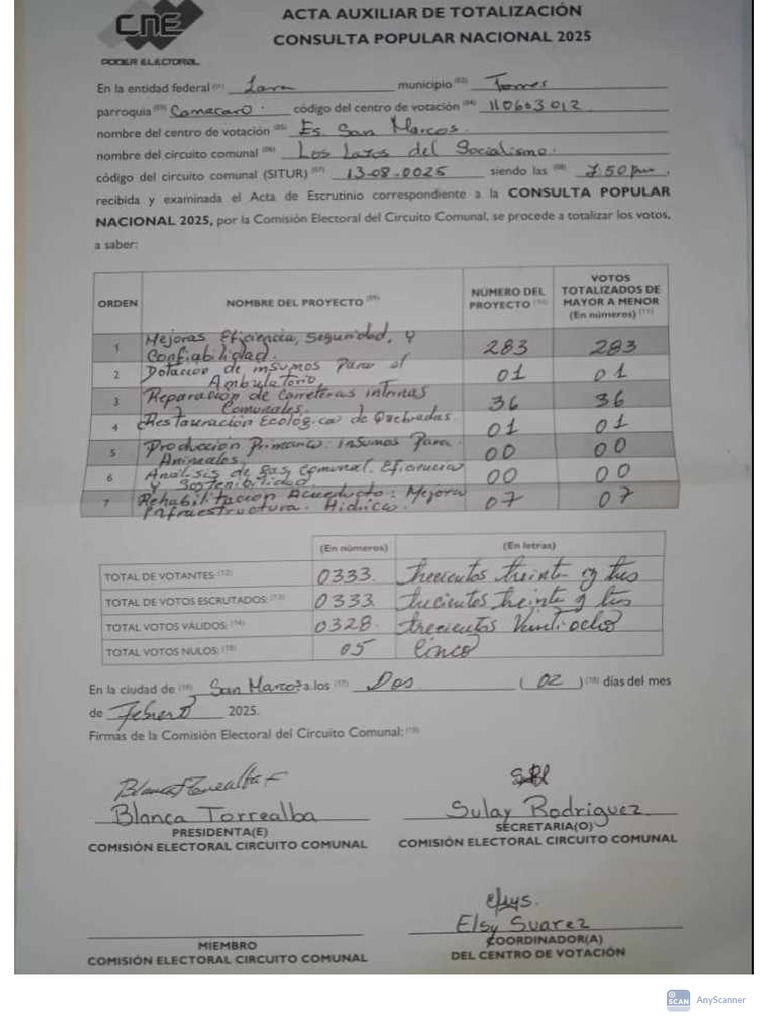 CNE
PODER ELECTORAL
ACTA AUXILIAR DE TOTALIZACIÓN
CONSULTA POPULAR NACIONAL 2025
En la entidad federal (01) Lara municipio (02) Torres
parroquia (03) Camacaro. código del centro de votación (04) 110603012
nombre del centro de votación (05) Es. San Marcos.
nombre del circuito comunal (06) Los Lazos del Socialismo.
código del circuito comunal (SITUR) (07) 13-08-0025 siendo las (08) 7:50 pm,
recibida y examinada el Acta de Escrutinio correspondiente a la CONSULTA POPULAR
NACIONAL 2025, por la Comisión Electoral del Circuito Comunal, se procede a totalizar los votos,
a saber:
ORDEN NOMBRE DEL PROYECTO (09) NÚMERO DEL PROYECTO (10) VOTOS TOTALIZADOS DE MAYOR A MENOR (En números) (11)
1 Mejoras Eficiencia, Seguridad, y
Confiabilidad. 283 283
2 Dotación de insumos Para el
Ambulatorio, 01 01
3 Reparación de Carreteras intrinas
y Comunales. 36 36
4 Restauración Ecológica de Quebradas. 01 01
5 Producción Primaria: insumos Para
Animales. 00 00
6 Analisis de gas Comunal. Eficiencia
y Sostenibilidad. 00 00
7 Rehabilitación Acueducto: Mejora
Infraestructura. Hidrica. 07 07
(En números) (En letras)
TOTAL DE VOTANTES: (12) 0333. trecientos treinta y tres
TOTAL DE VOTOS ESCRUTADOS: (13) 0333 trecientos treinta y tres
TOTAL VOTOS VÁLIDOS: (14) 0328. trecientos Veintiocho
TOTAL VOTOS NULOS: (15) 05 Cinco
En la ciudad de (16) San Marcos a los (17) Dos (02) (18) días del mes
de Febrero 2025.
Firmas de la Comisión Electoral del Circuito Comunal: (19)
Blanca Torrealba F
Blanca Torrealba
PRESIDENTA(E)
COMISIÓN ELECTORAL CIRCUITO COMUNAL
Sulay Rodriguez
SECRETARIA(O)
COMISIÓN ELECTORAL CIRCUITO COMUNAL
MIEMBRO
COMISIÓN ELECTORAL CIRCUITO COMUNAL
Elsy Suarez
COORDINADOR(A)
DEL CENTRO DE VOTACIÓN
SCAN AnyScanner